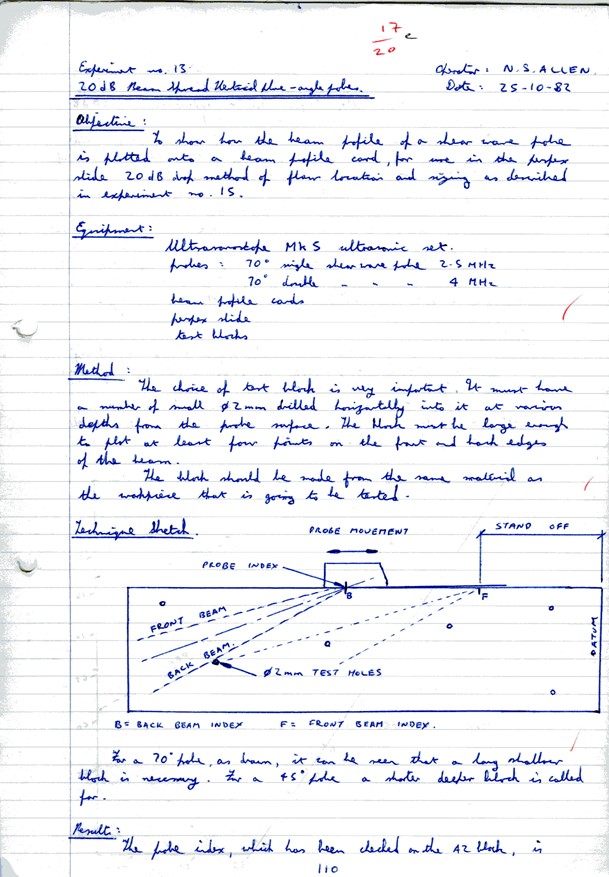 17
20
Experiment no. 13.
Operator: N.S.ALLEN.
20dB Beam Spread Vertical Plane - angle probe.
Date: 25-10-82
Objective:
To show how the beam pofile of a shear wave probe
is plotted onto a beam pofile card, for use in the perspex
slide 20dB drop method of flaw location and sizing as described
in experiment no. 15.
Equipment:
Ultrasonoscope MkS ultrasonic set.
probes: 70° single shear wave probe 2.5 MHz
70° double " " " 4 MHz
beam pofile cards
perspex slide
test blocks
Method:
The choice of test block is very important. It must have
a number of small ø2mm drilled horizontally into it at various
depths from the probe surface. The block must be large enough
to plot at least four points on the front and back edges
of the beam.
The block should be made from the same material as
the workpiece that is going to be tested.
Technique Sketch.
PROBE MOVEMENT
STAND OFF
PROBE INDEX
B
F
FRONT BEAM
BACK BEAM.
DATUM
Ø2mm TEST HOLES
B = BACK BEAM INDEX F = FRONT BEAM INDEX.
For a 70° probe, as drawn, it can be seen that a long shallow
block is necessary. For a 45° probe a shorter deeper block is called
for.
Results:
The probe index, which has been checked on the A2 block, is
110